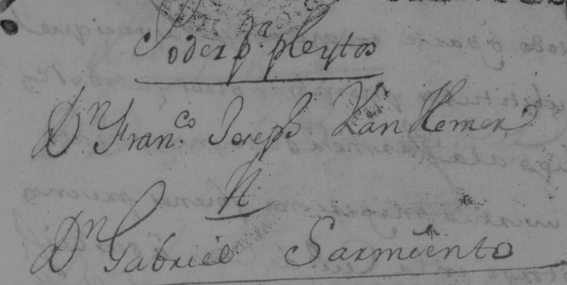 Poder pª pleytos
Dn Franco Joseph Van Hemer
A
Dn Gabriel Sarmiento